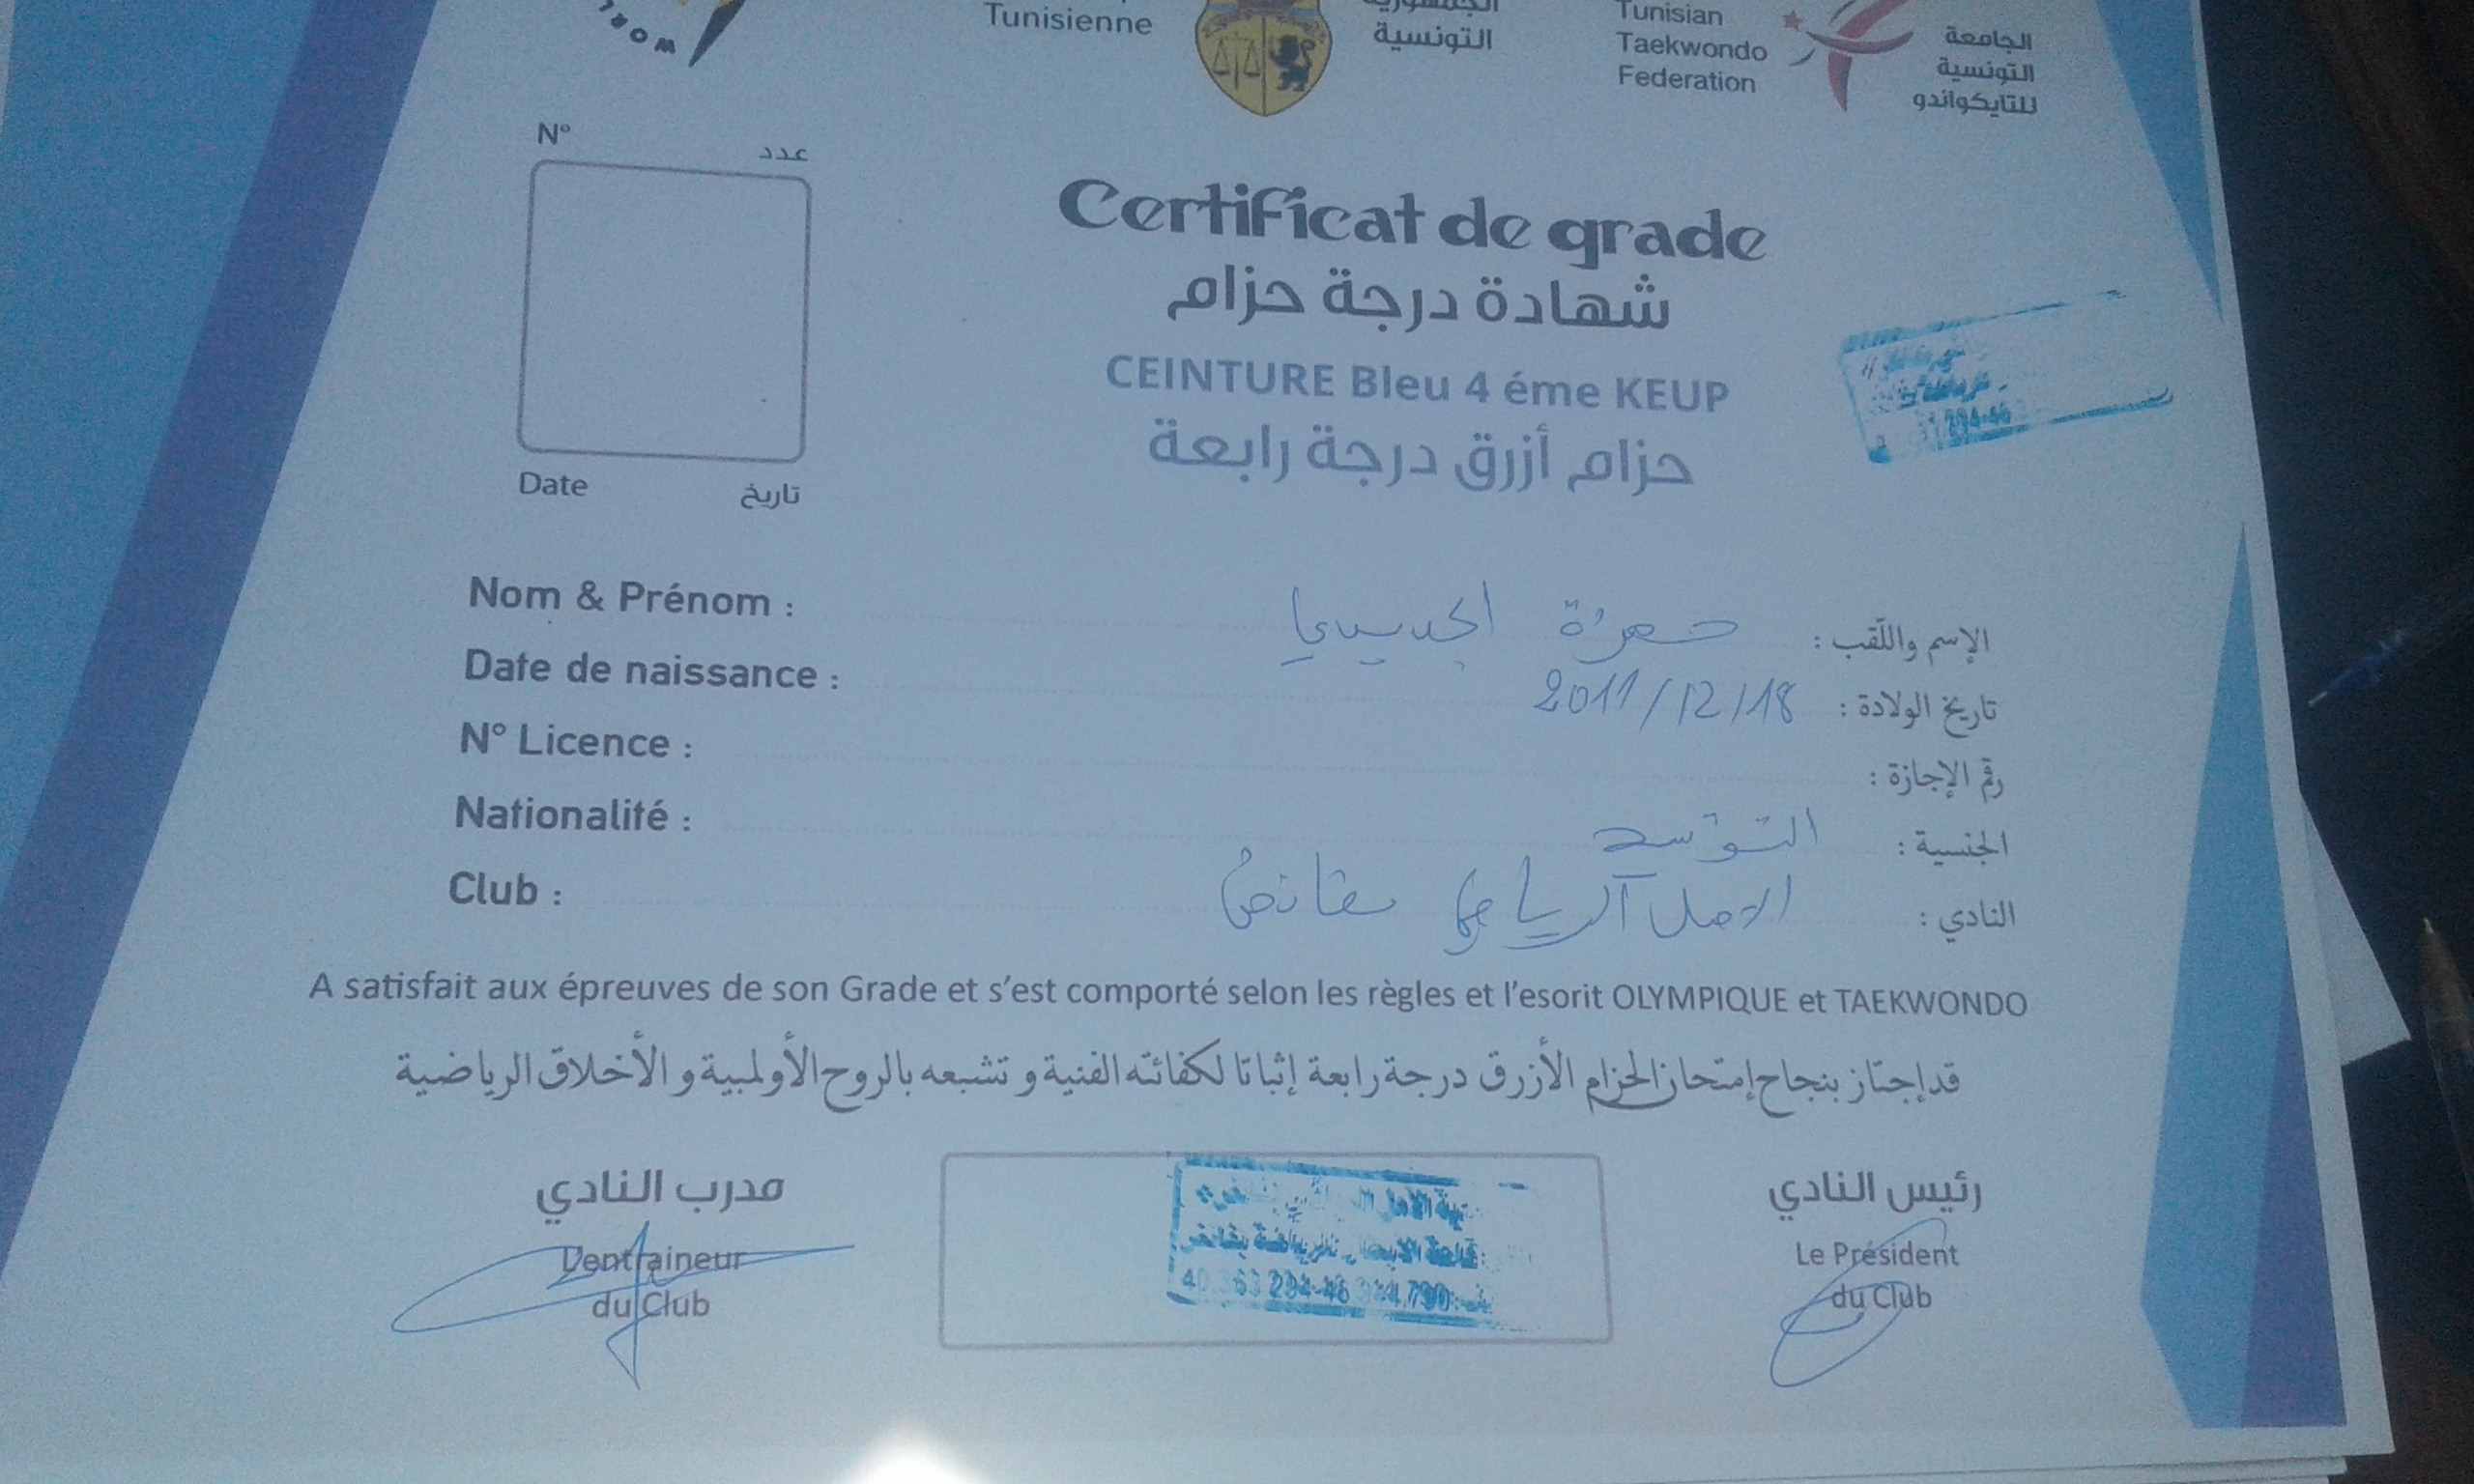 WOR
Tunisienne
التونسية
Tunisian
Taekwondo
Federation
الجامعة
التونسية
للتايكواندو
N° عدد
Certificat de grade
شهادة درجة حزام
CEINTURE Bleu 4 éme KEUP
حزام أزرق درجة رابعة
Date تاريخ
294-46
Nom & Prénom : حمزة الجديدي الإسم واللّقب :
Date de naissance : 2011/12/18 تاريخ الولادة :
N° Licence : رقم الإجازة :
Nationalité : الجنسية :
Club : الامل الرياضي بقانص النادي :
A satisfait aux épreuves de son Grade et s'est comporté selon les règles et l'esorit OLYMPIQUE et TAEKWONDO
قد إجتاز بنجاح إمتحان الحزام الأزرق درجة رابعة إثباتا لكفائته الفنية و تشبعه بالروح الأولمبية و الأخلاق الرياضية
مدرب النادي
L'entraineur
du Club
رئيس النادي
Le Président
du Club